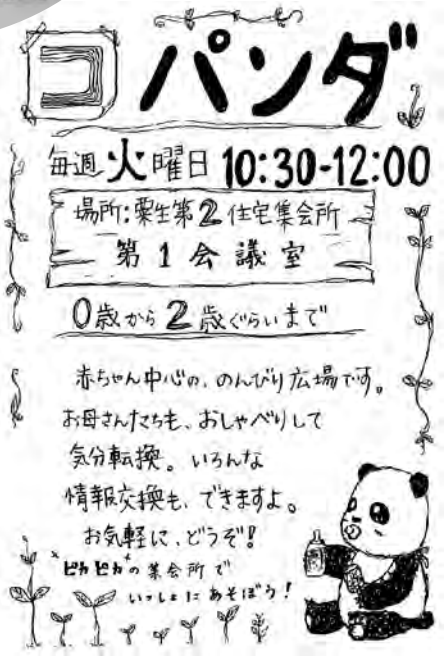 コパンダ
毎週火曜日 10:30-12:00
場所:粟生第2住宅集会所
第1会議室
0歳から2歳ぐらいまで
赤ちゃん中心の、のんびり広場です。
お母さんたちも、おしゃべりして
気分転換。いろんな
情報交換も、できますよ。
お気軽に、どうぞ!
"ピカピカ"の集会所で
いっしょにあそぼう!